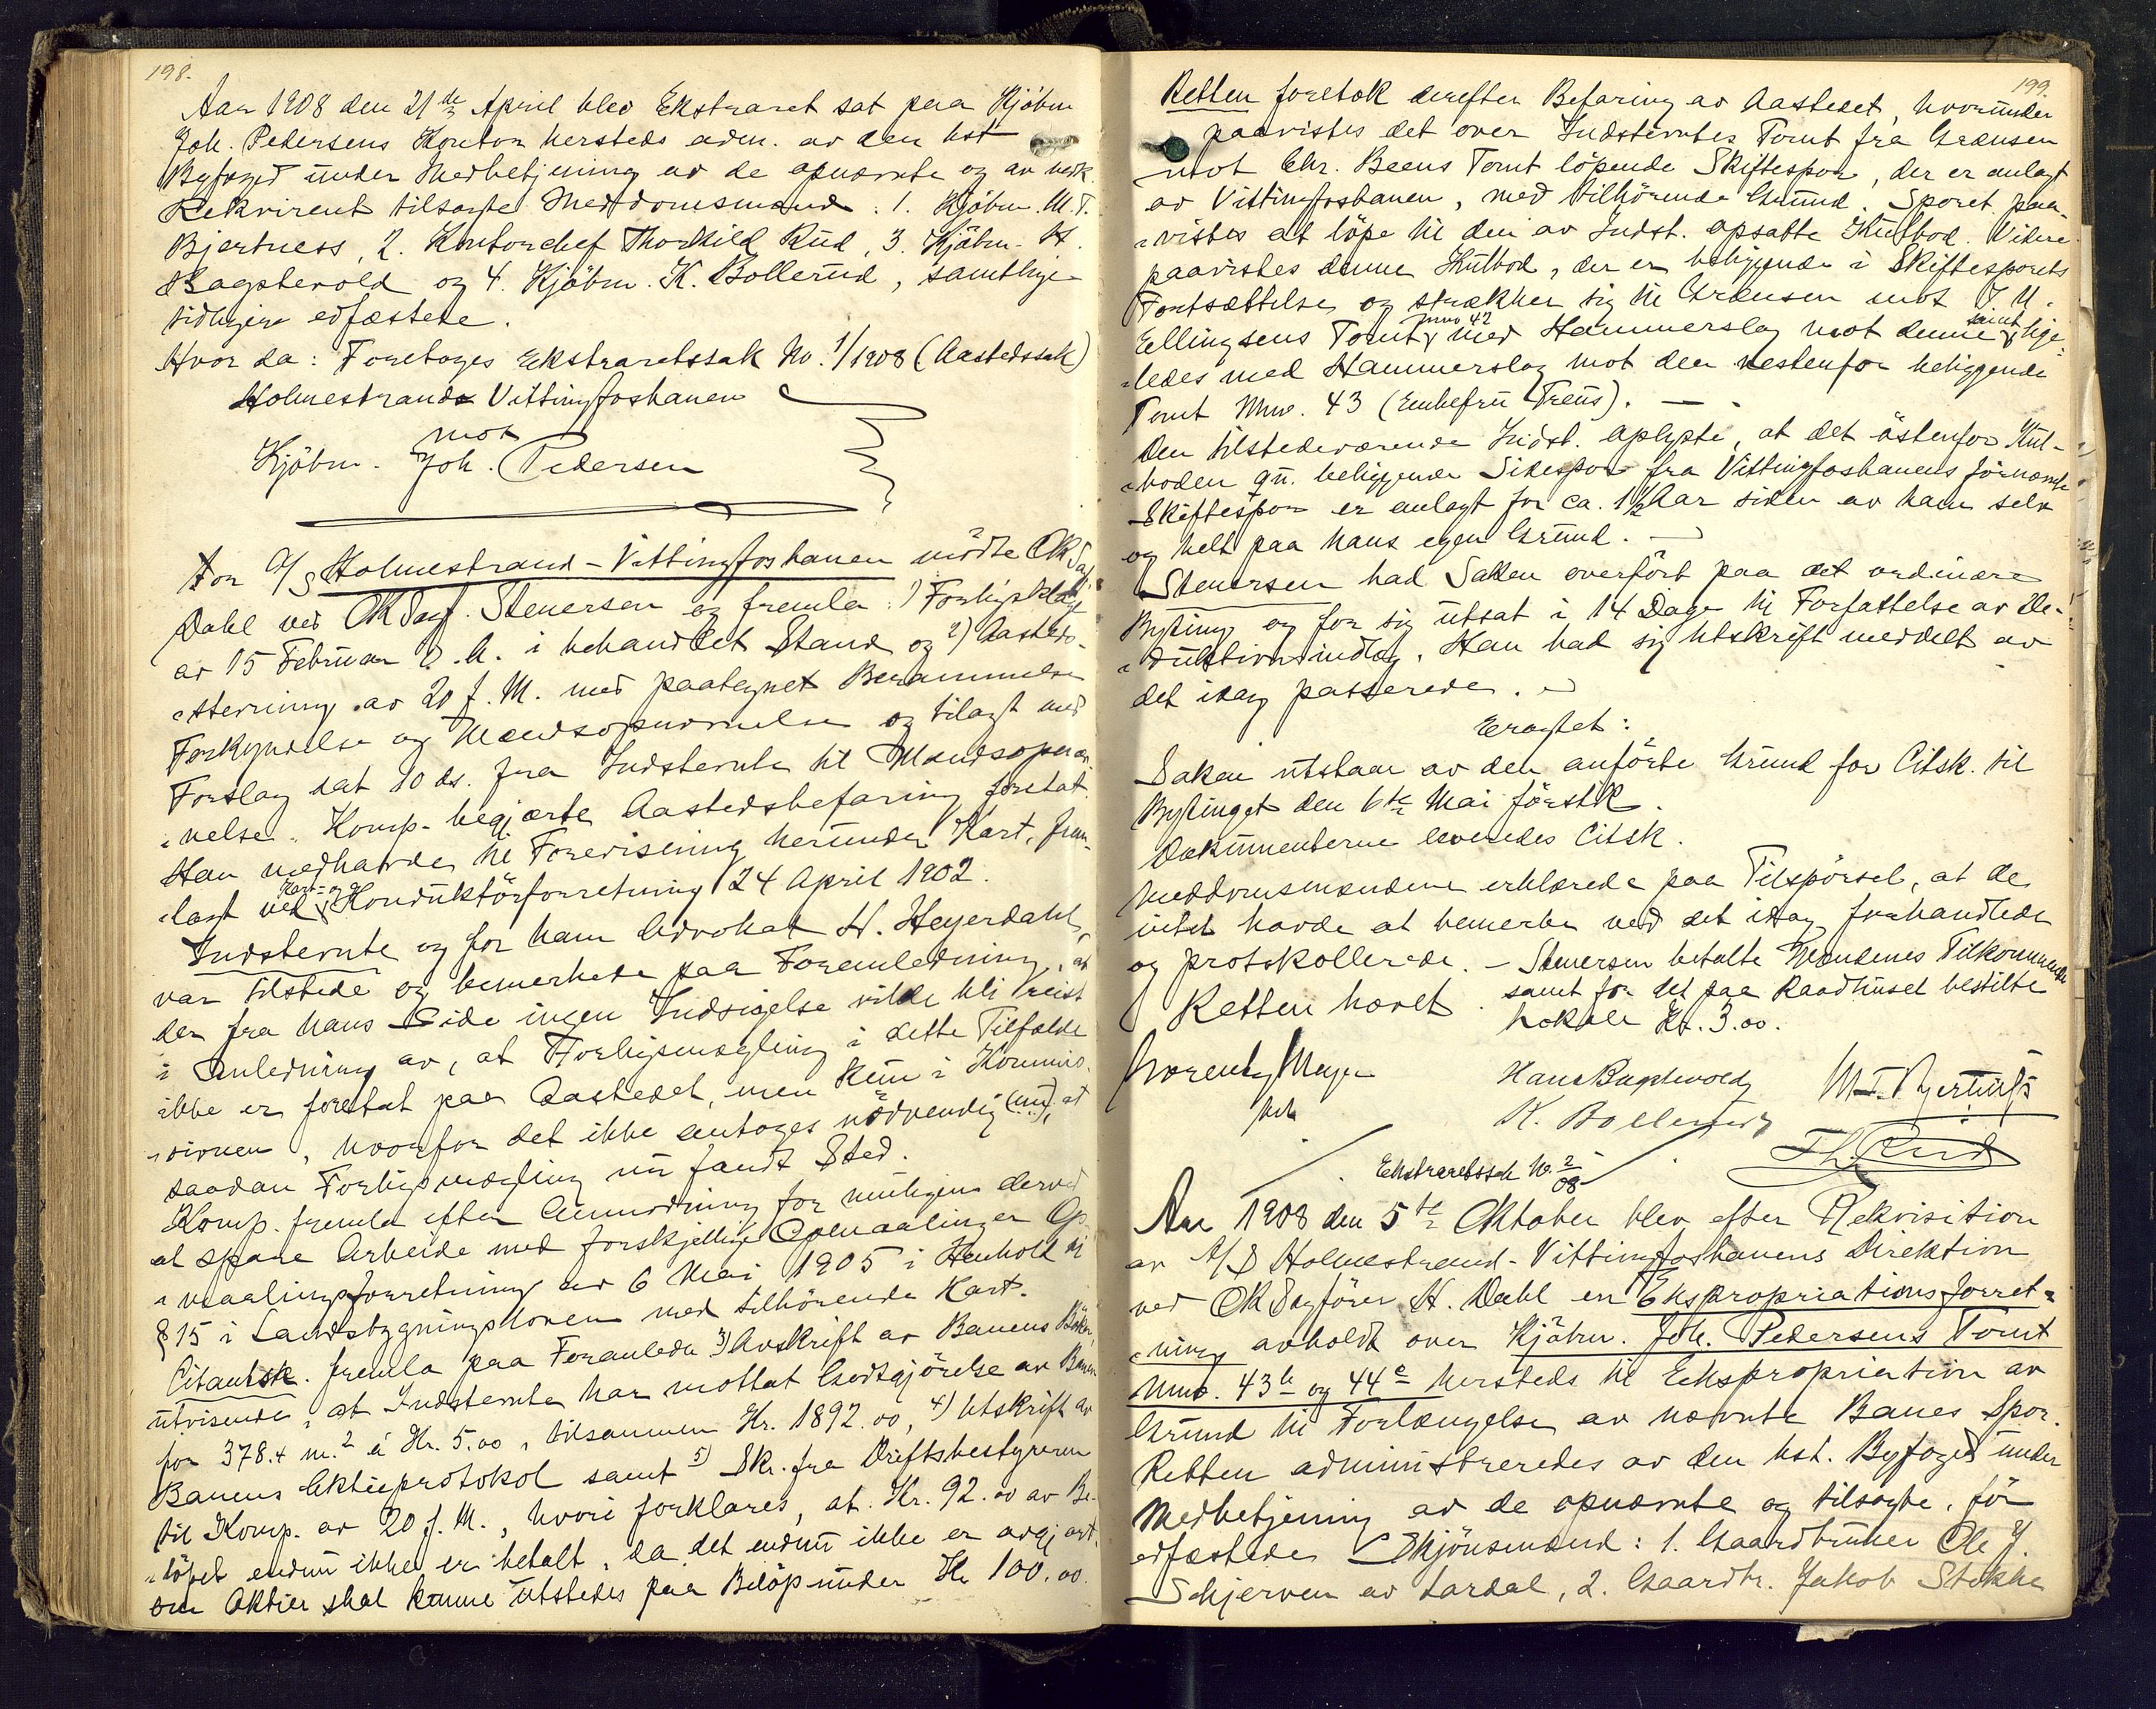 198.
Aar 1908 den 21de April blev Ekstraret sat paa Kjöbm
Joh. Pedersens Kontor hersteds adm. av den kst
Byfoged under Medbetjening av de opnævnte og av vedk.
Rekvirent tilsagte Meddomsmænd: 1. Kjöbm. M. T.
Bjertness, 2. Kontorchef Thorkild Rud, 3. Kjöbm. H.
Bagstevold og 4. Kjöbm. K. Bollerud, samtlige
tidligere edfæstede.
Hvor da: Foretoges Ekstraretssak No. 1/1908 (Aastedssak)
Holmestrand Vittingfosbanen
mot
Kjöbm. Joh. Pedersen
For A/S Holmestrand-Vittingfosbanen mödte ORSagf.
Dahl ved ORSagf. Stenersen og fremla: 1) Forligsklag
av 15 Februar d. A. i behandlet Stand og 2) Aasteds-
stevning av 20 f. M. med paategnet Berammelse
Forkyndelse og Mændsopnævnelse og tilagt med
Forslag dat 10 ds. fra Indstevnte til Mændsopnæv-
nelse. Komp. begjærte Aastedsbefaring foretat.
Han medhavde til Forevisning herunder Kart, frem-
lagt ved Kart- og Konduktörforretning 24 April 1902.
Indstevnte og for ham Advokat H. Heyerdahl,
var tilstede og bemerkede paa Foranledning, at
der fra hans Side ingen Indsigelse vilde bli reist
i Anledning av, at Forligsmægling i dette Tilfælde
ikke er foretat paa Aastedet, men kun i Kommis-
sionen, hvorfor det ikke antoges nödvendig (nu), at
saadan Forligsmægling nu fandt Sted.
Komp. fremla efter Anmodning for muligens derved
at spare Arbeide med forskjellige Opmaalinger Op-
maalingsforretning av 6 Mai 1905 i Henhold til
§ 15 i Landsbygningsloven med tilhörende Kart.
Citantsk. fremla paa Foranledn 3) Avskrift av Banens Böker,
utvisende, at Indstevnte har mottat Godtgjörelse av Banen
for 378.4 m.2 á Kr. 5.00, tilsammen Kr. 1892.00, 4) Utskrift av
Banens Aktieprotokol samt 5) Skr. fra Driftsbestyreren
til Komp. av 20 f. M., hvori forklares, at Kr. 92.00 av Be-
löpet endnu ikke er betalt, da det endnu ikke er avgjort,
om Aktier skal kunne utstedes paa Belöp under Kr 100.00.
199.
Retten foretok derefter Befaring av Aastedet, hvorunder
paavistes det over Indstevntes Tomt fra Grænsen
mot Chr. Beens Tomt löpende Skiftespor, der er anlagt
av Vittingfosbanen, med tilhörende Grund. Sporet paa-
vistes at löpe til den av Indst. opsatte Kulbod. Videre
paavistes denne Kulbod, der er beliggende i Skiftesporets
Fortsættelse og strækker sig til Grænsen mot J. M.
Ellingsens Tomt Mno 42 med Hammerslag mot denne samt lige-
ledes med Hammerslag mot den vestenfor beliggende
Tomt Mno. 43 (Enkefru Treus). —
Den tilstedeværende Indst. oplyste, at det östenfor Kul-
boden gu. beliggende Sidespor fra Vittingfosbanens förnævnte
Skiftespor er anlagt for ca. 1 1/2 Aar siden av ham selv
og helt paa hans egen Grund. —
Stenersen bad Saken overfört paa det ordinære
Byting og for sig utsat i 14 Dage til Forfattelse av De-
duktionsindlæg. Han bad sig Utskrift meddelt av
det idag passerede.
Eragtet:
Saken utstaar av den anförte Grund for Citsk. til
Bytinget den 6te Mai förstk.
Dokumenterne leveredes Citsk.
Meddomsmændene erklærede paa Tilspörsel, at de
intet havde at bemerke ved det idag forhandlede
og protokollerede. — Stenersen betalte Mændenes Tilkommende
samt for det paa Raadhuset bestilte
Lokale Kr. 3.00.
Retten hævet.
Hans Bagstevold
M. T. Bjertness
K. Bollerud
Th. Rud
Ekstraretssak No. 2/08
Aar 1908 den 5te Oktober blev efter Rekvisition
av A/S Holmestrand-Vittingfosbanens Direktion
ved ORSagförer H. Dahl en Ekspropriationsforret-
ning avholdt over Kjöbm. Joh. Pedersens Tomt
Mno. 43b og 44e hersteds til Ekspropriation av
Grund til Forlængelse av nævnte Banes Spor.
Retten administreredes av den kst. Byfoged under
Medbetjening av de opnævnte og tilsagte, för
edfæstede Skjönsmænd: 1. Gaardbruker Ole J.
Skjerven av Lardal, 2. Gaardbr. Jakob Stokke